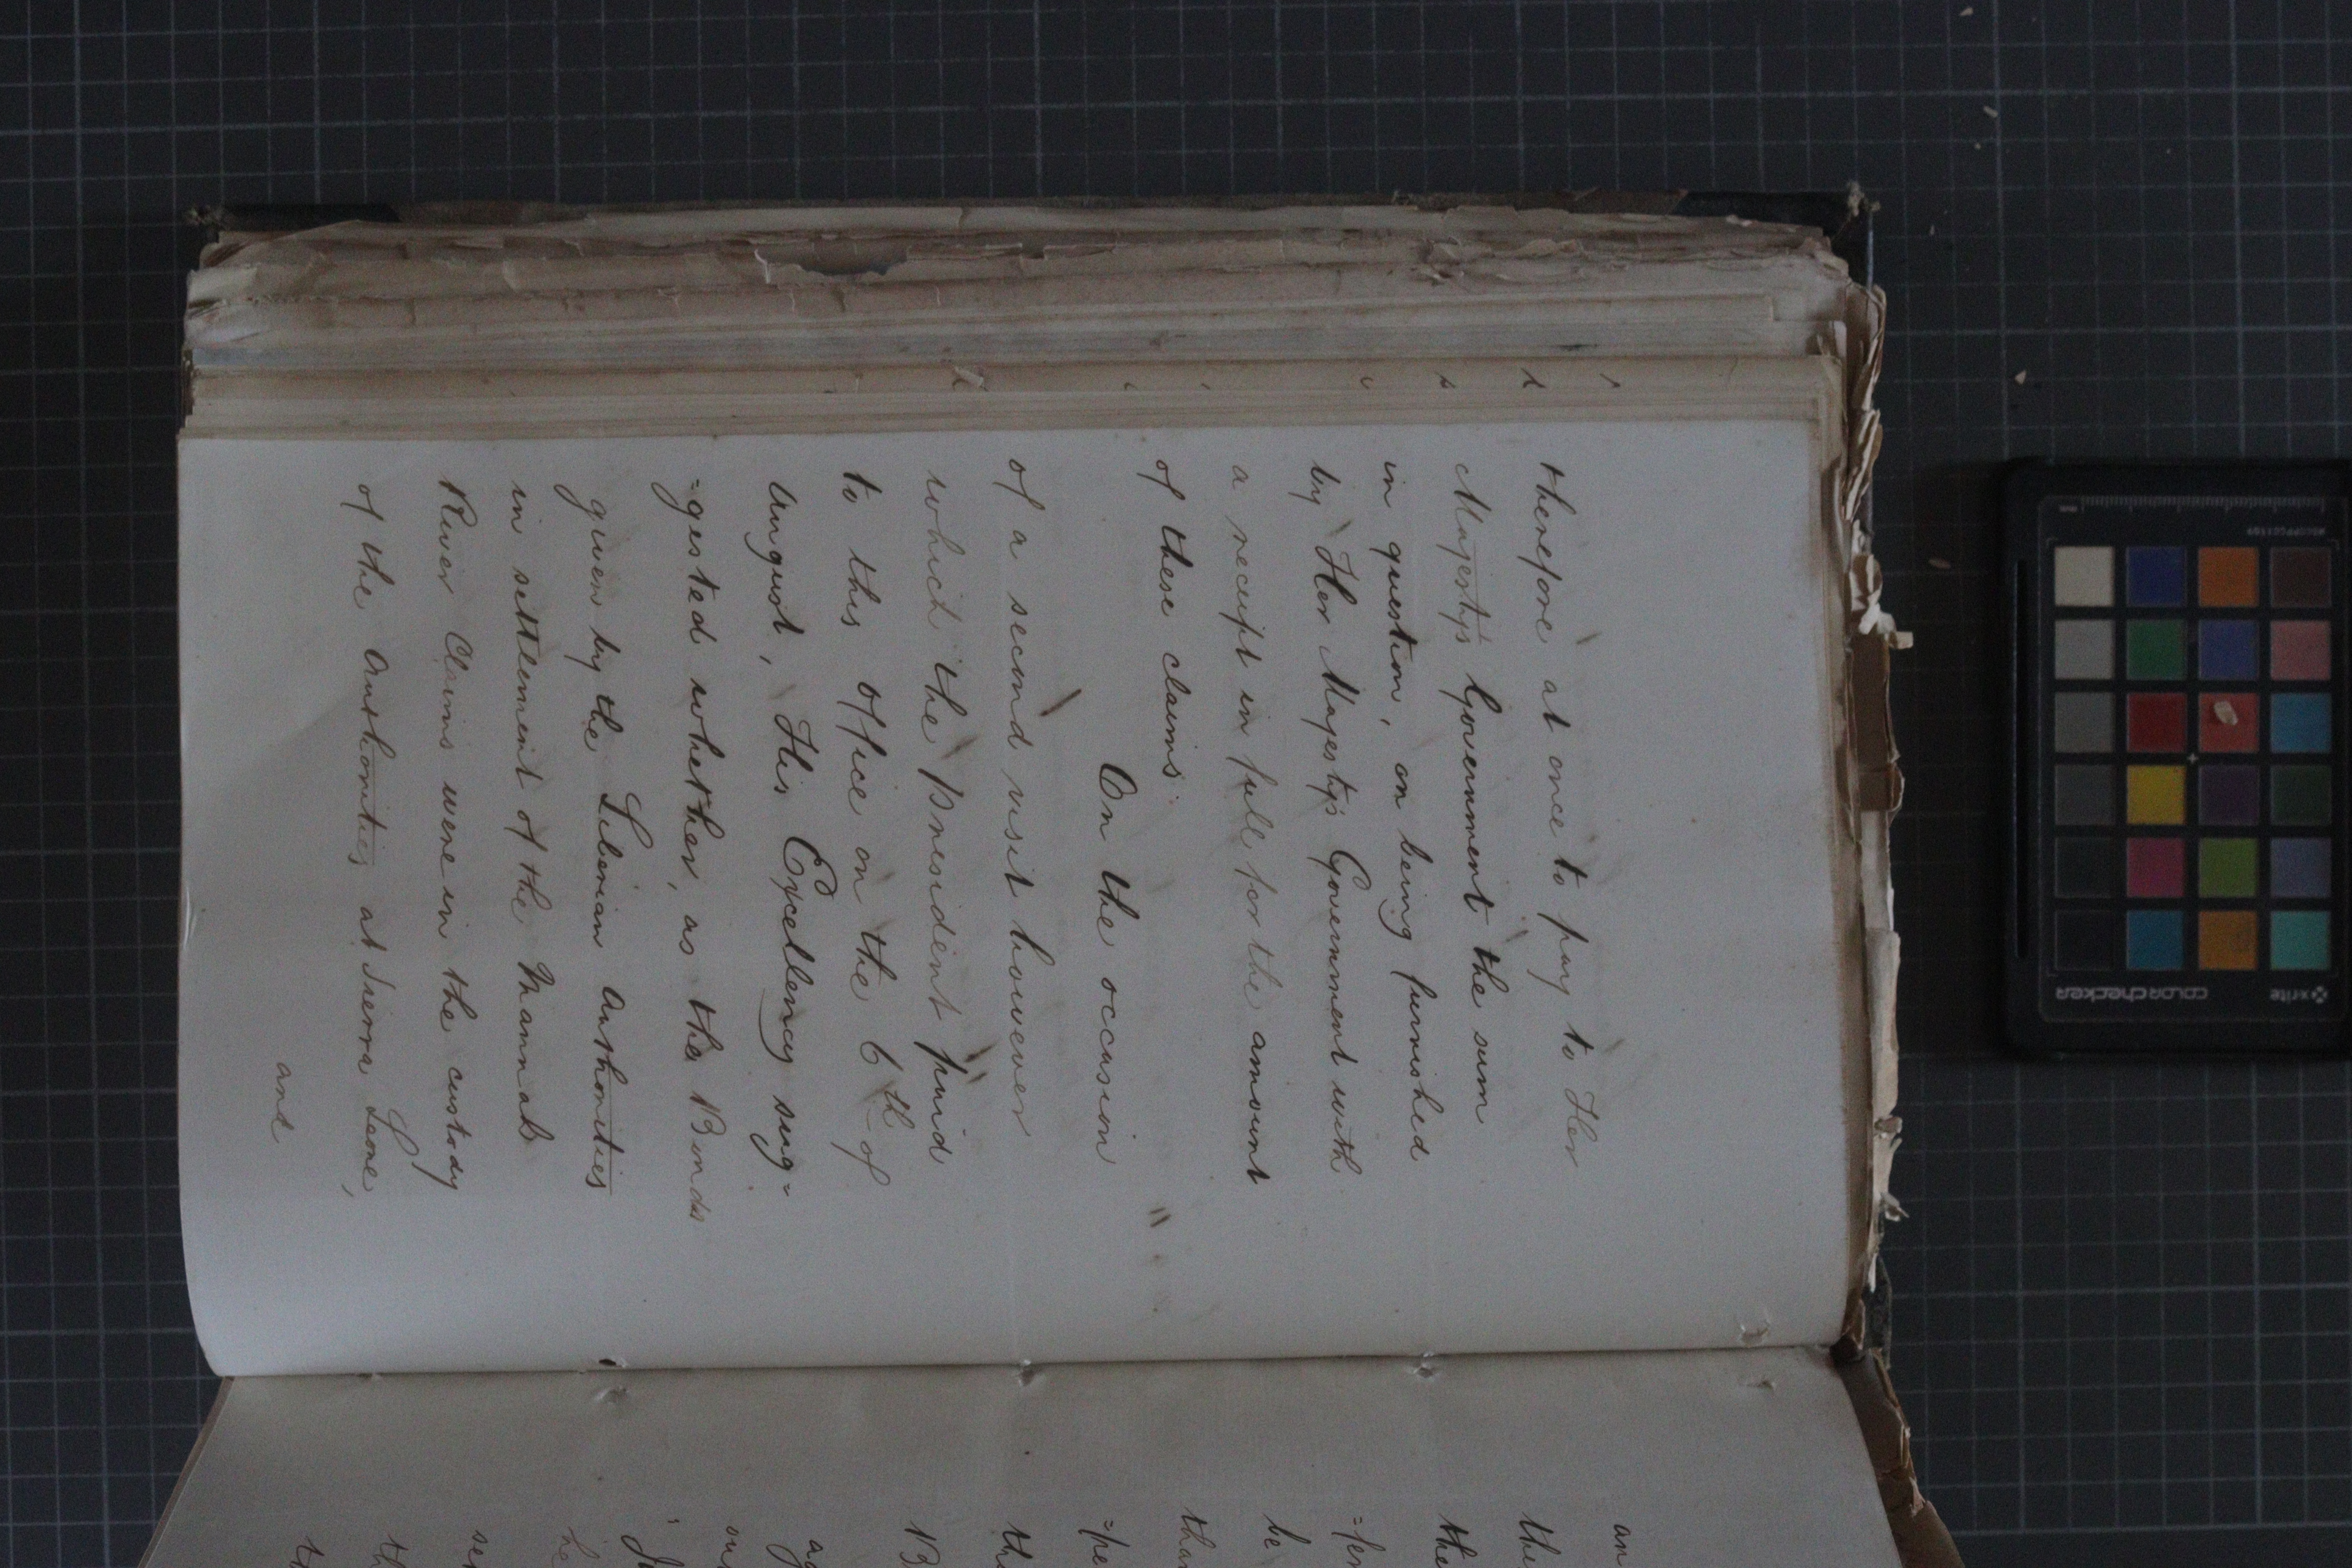 therefore at once to pay to Her
Majesty's Government the sum
in question, on being furnished
by Her Majesty's Government with
a receipt in full for the amount
of these claims.
On the occasion
of a second visit however
which the President paid
to this Office on the 6th of
August, His Excellency sug=
=gested whether, as the Bonds
given by the Liberian Authorities
in settlement of the Mannah
River Claims were in the custody
of the Authorities at Sierra Leone,
and
an
the
the
=ten
be
than
=pe
the
B
ag
our
he
se
th
colorchecker
x-rite